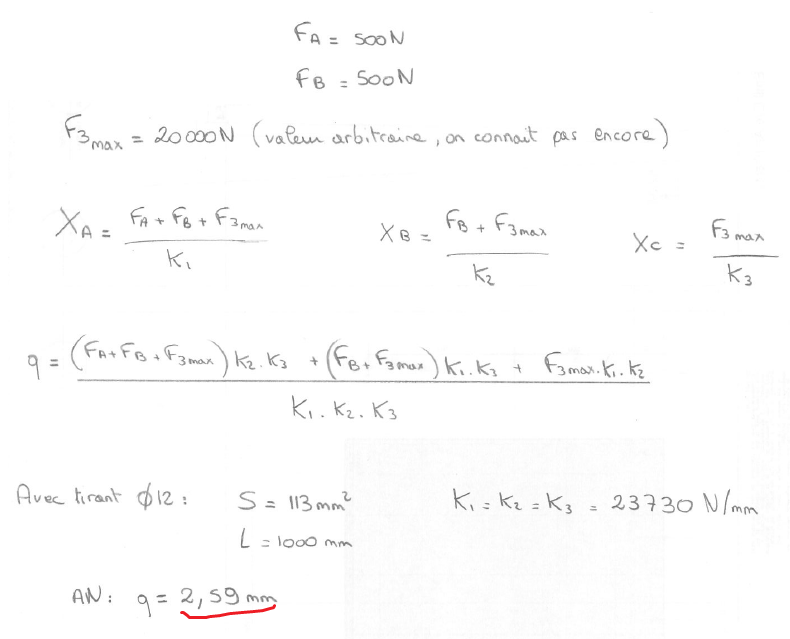 FA = 500N
FB = 500N
F3max = 20000N (valeur arbitraire, on connait pas encore)
XA = (FA + FB + F3max) / K1    XB = (FB + F3max) / K2    Xc = F3max / K3
q = ((FA + FB + F3max) K2 . K3 + (FB + F3max) K1 . K3 + F3max . K1 . K2) / (K1 . K2 . K3)
Avec tirant ϕ12 :    S = 113 mm²    K1 = K2 = K3 = 23730 N/mm
L = 1000 mm
AN : q = 2,59 mm